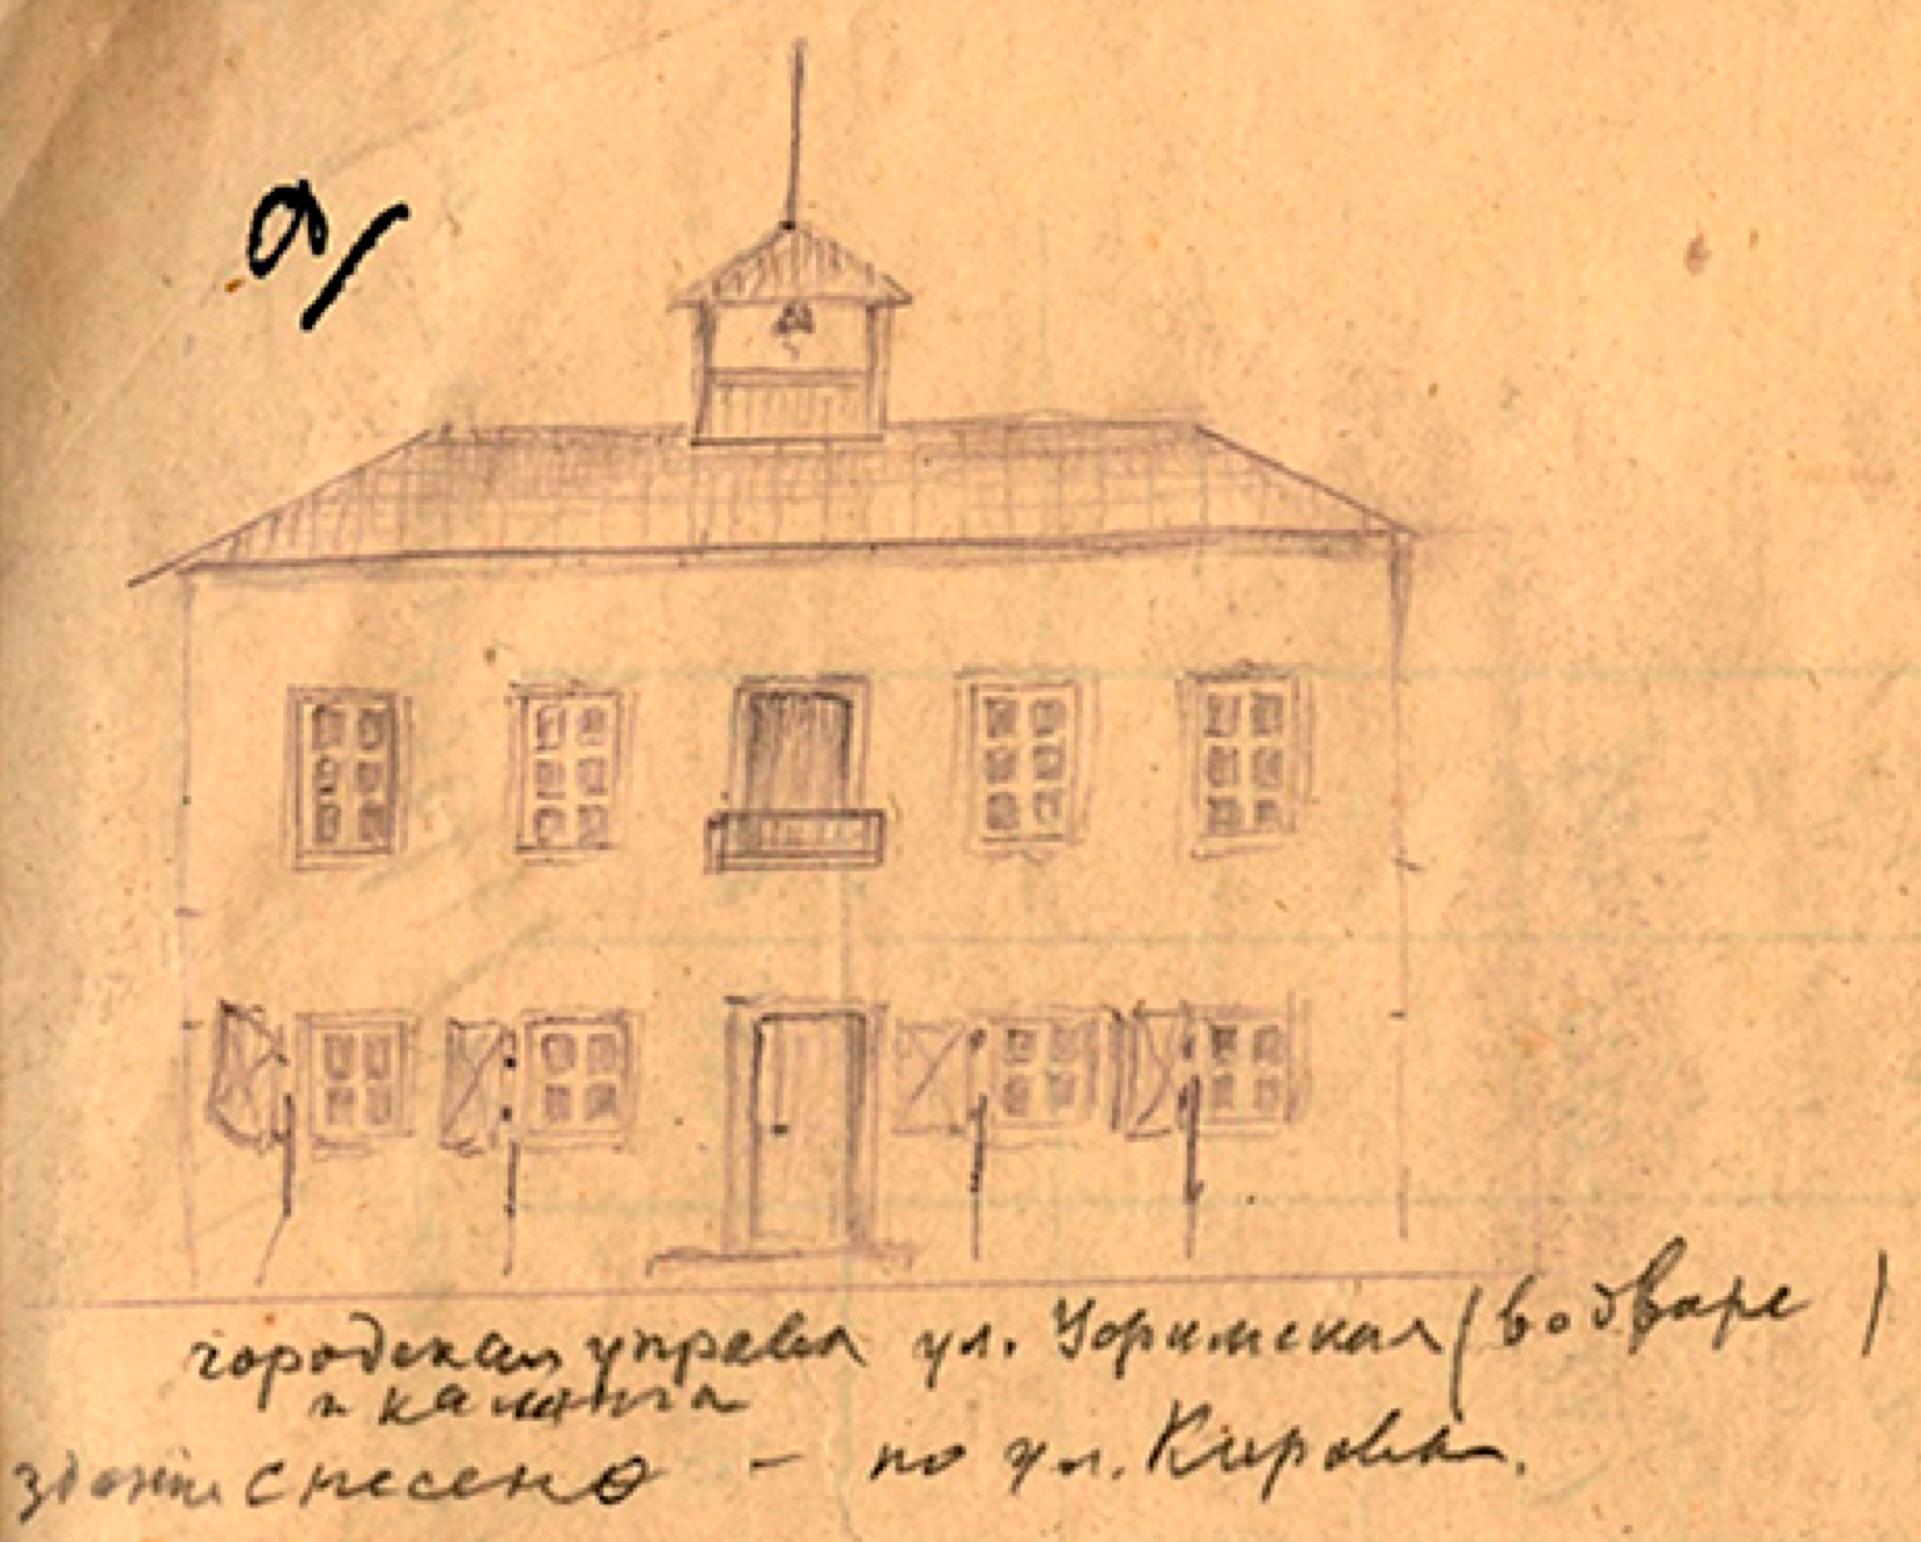 а)
городская управа ул. Уоримская (во дворе)
и
здание снесено - по ул. Кирова.